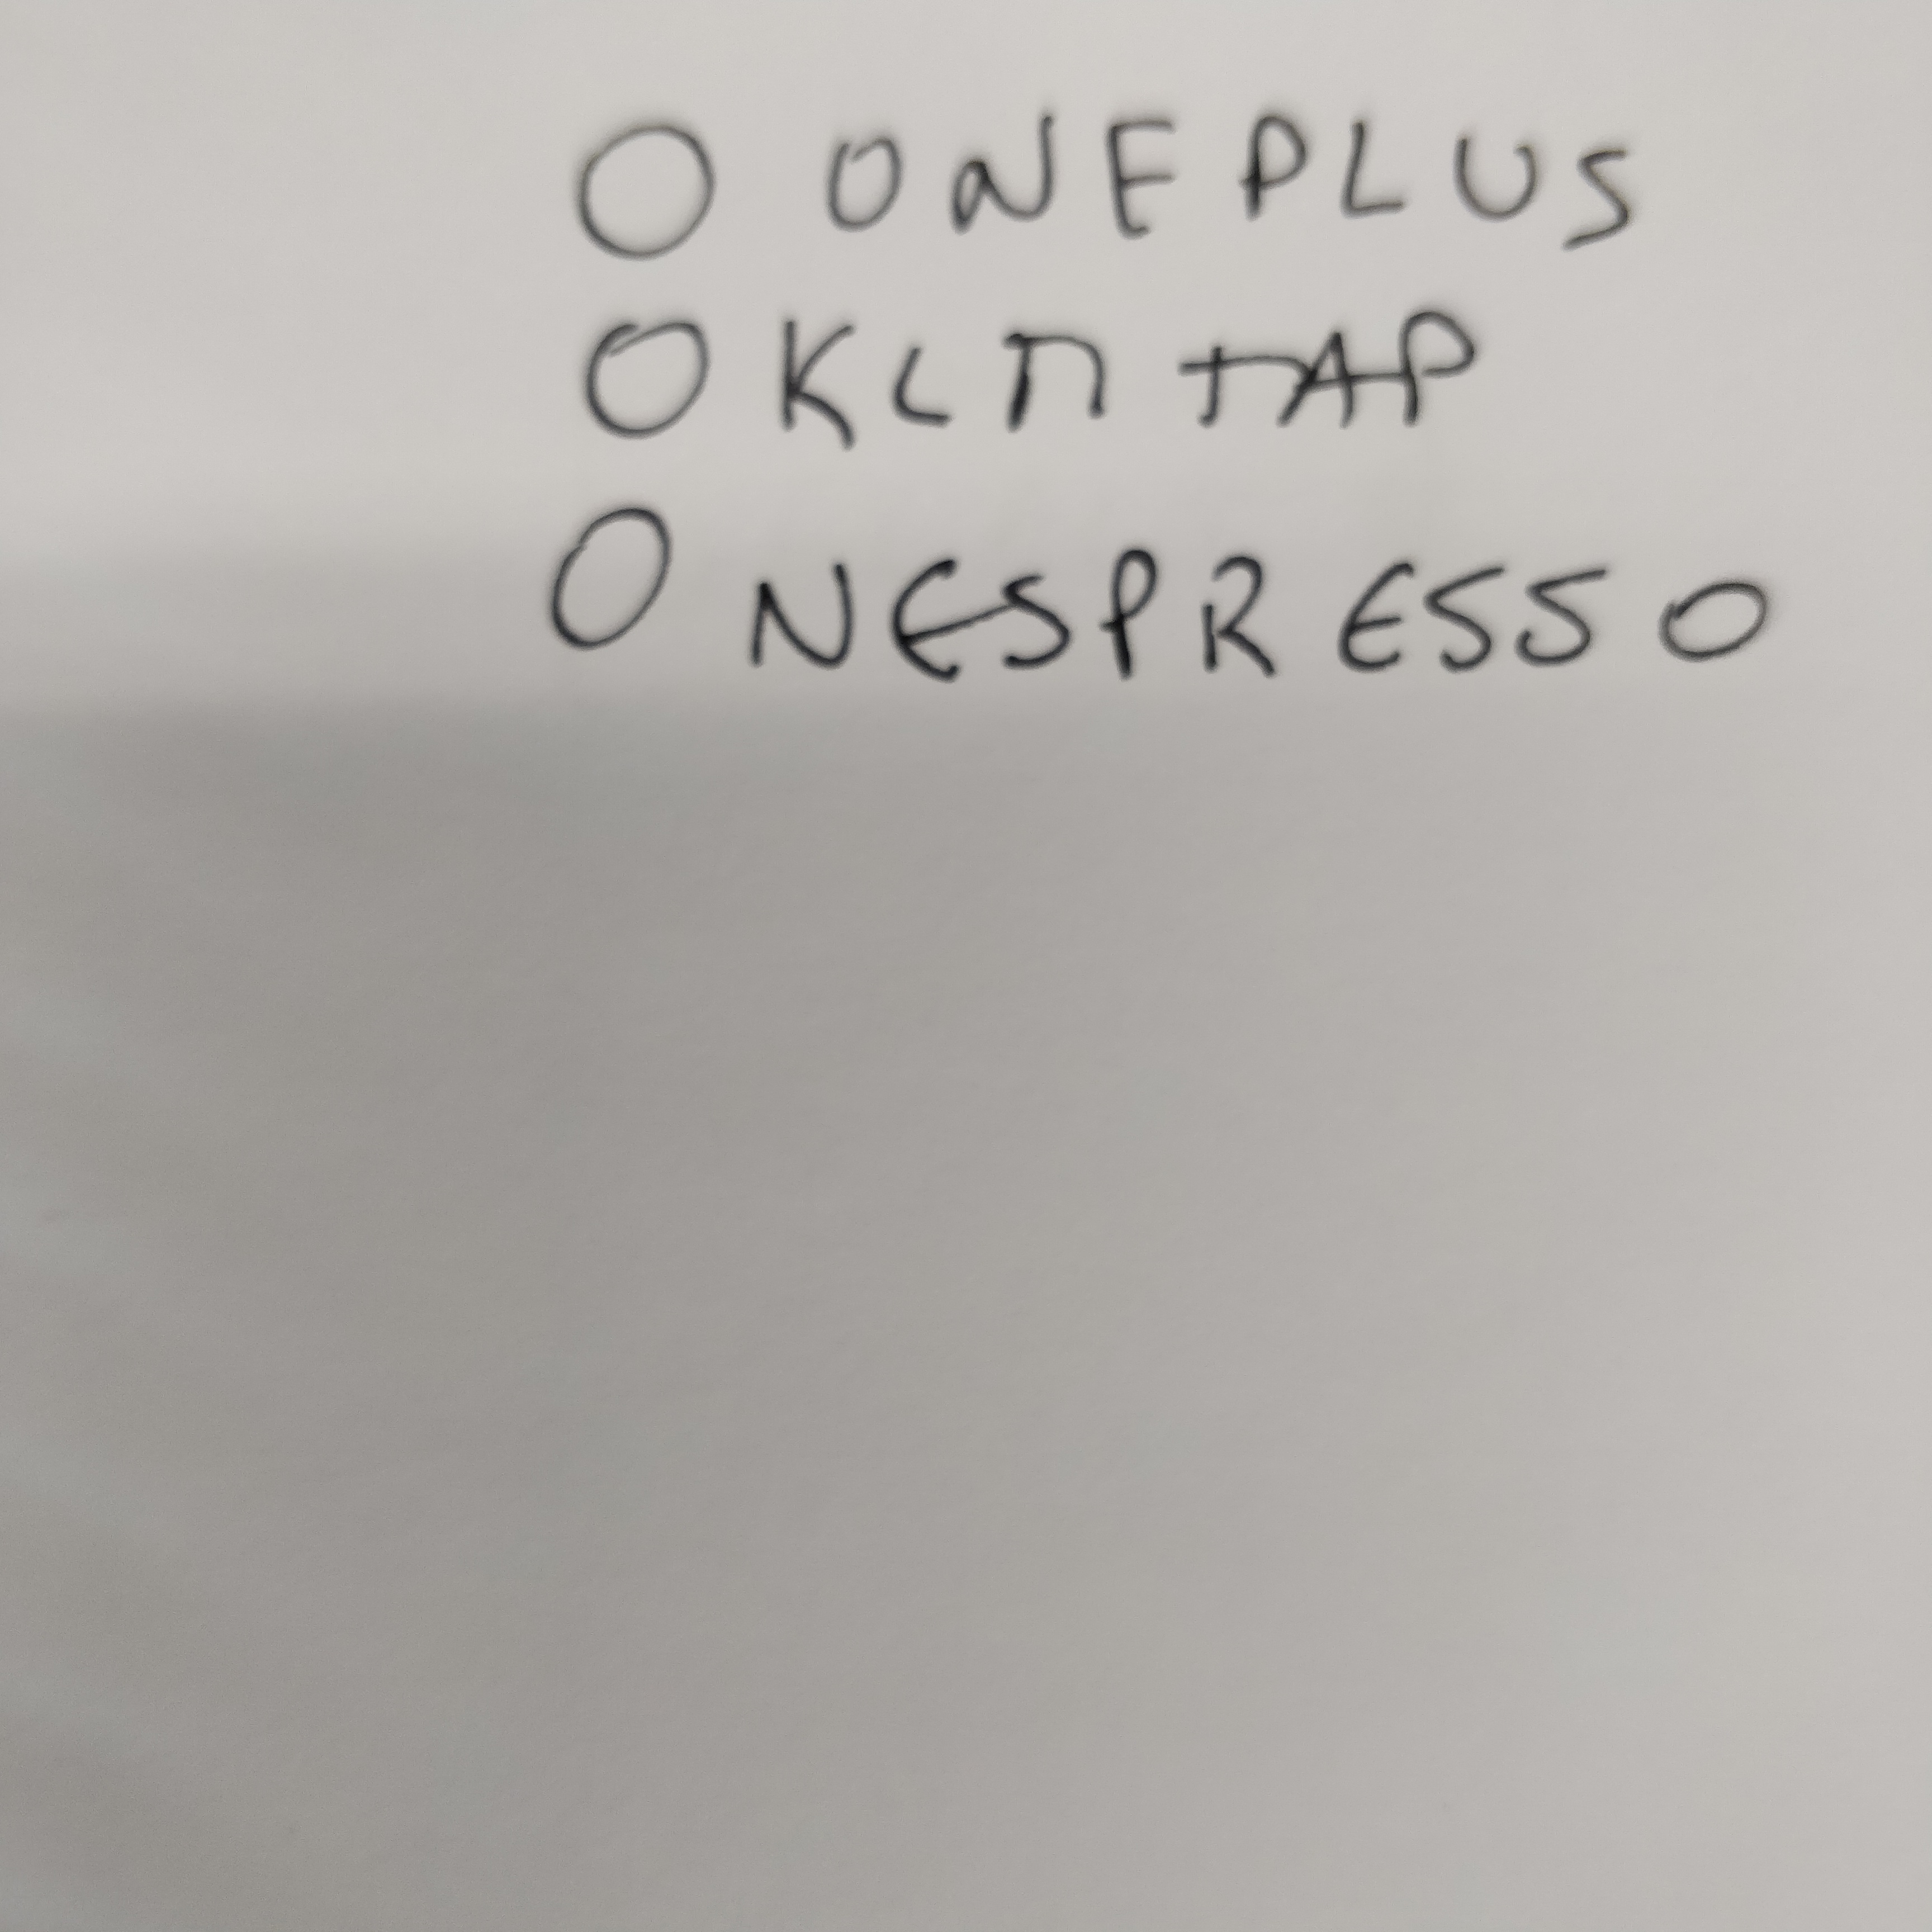 ○ ONEPLUS
○ KLM TAP
○ NESPRESSO